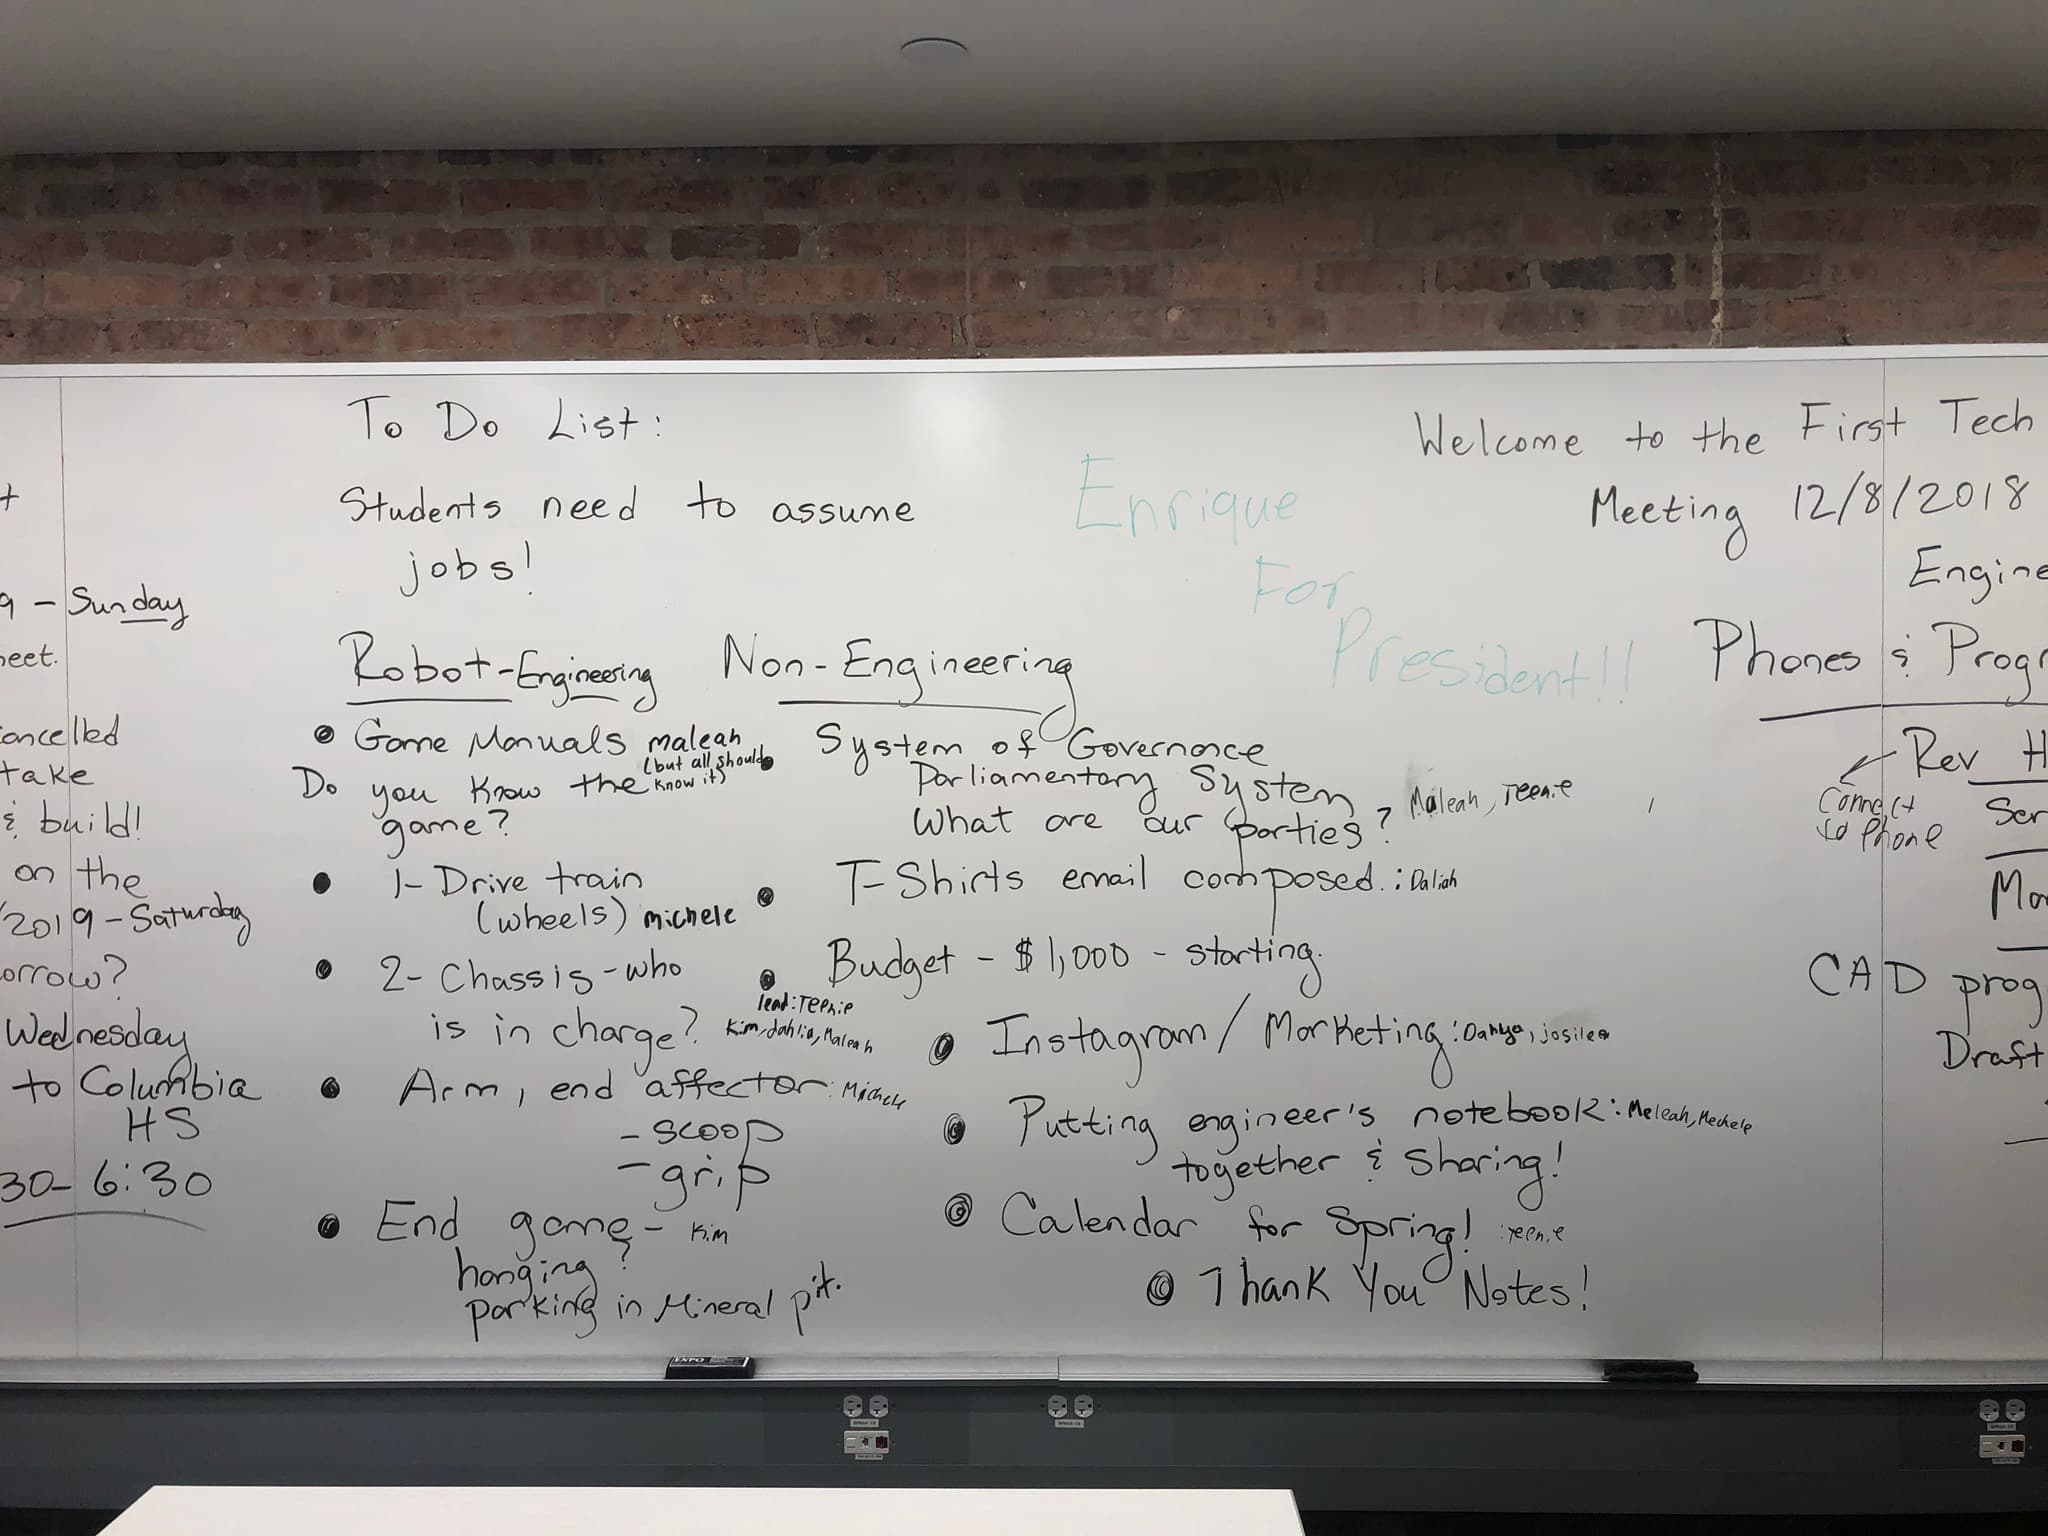 - Sunday
cancelled
take
& build!
on the
/2019 - Saturday
Wednesday
to Columbia
HS
30- 6:30
To Do List:
Students need to assume
jobs!
Robot-Engineering
• Game Manuals maleah
(but all should
know it)
Do you know the
game?
• 1- Drive train
(wheels) michele
• 2- Chassis - who
is in charge?
lead: Teenie
Kim, dahlia, Maleah
• Arm, end affector: Michele
- scoop
- grip
• End game - Kim
hanging?
parking in Mineral pit.
Non-Engineering
• System of Governance
Parliamentary System
What are our parties? Maleah, Teenie
• T-Shirts email composed.: Daliah
• Budget - $1,000 - starting.
• Instagram/Marketing: Danya, josilea
• Putting engineer's notebook: Meleah, Mechele
together & sharing!
• Calendar for Spring! :Teenie
• Thank You Notes!
Enrique
For
President!!
Welcome to the First Tech
Meeting 12/8/2018
Engine
Phones & Progr
Rev H
Connect
to Phone
Ser
CAD prog
Draft
EXPO